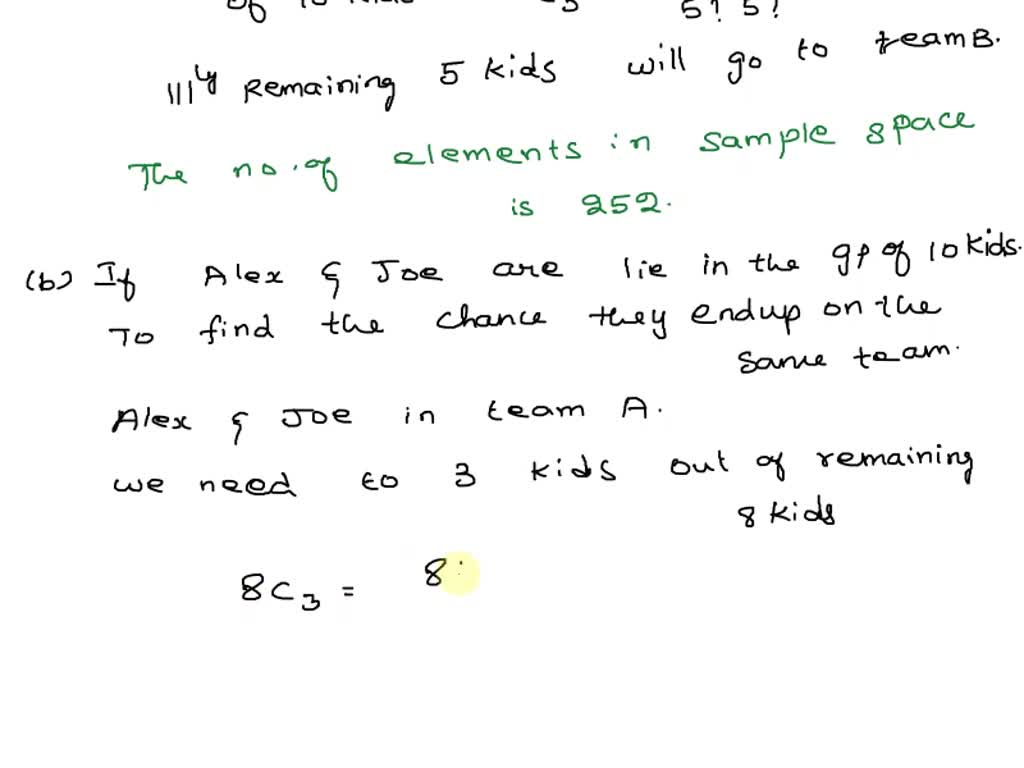 of 10
5! 5!
111ly Remaining 5 kids will go to team B.
The no. of elements in sample space
is 252.
(b) If Alex & Joe are lie in the gp of 10 kids.
To find the chance they endup on the
same team.
Alex & Joe in team A.
we need to 3 kids out of remaining
8 kids
8C3 = 8